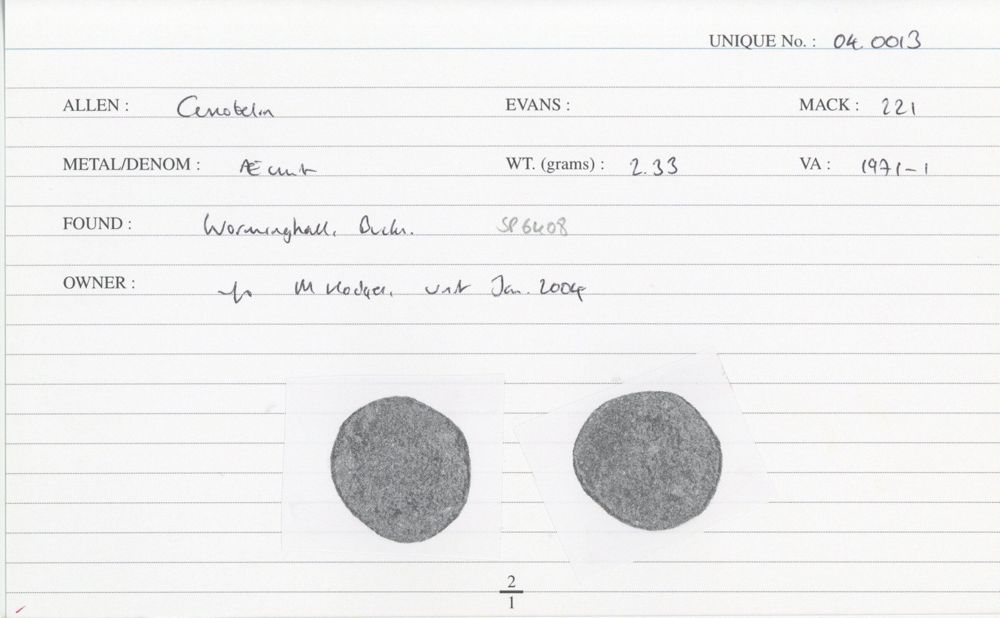 UNIQUE No. : 04.0013
ALLEN : Cunobelin EVANS : MACK : 221
METAL/DENOM : Æ unit WT. (grams) : 2.33 VA : 1971-1
FOUND : Worminghall, Bucks. SP6408
OWNER : M Hodges, Jan. 2004
2
1